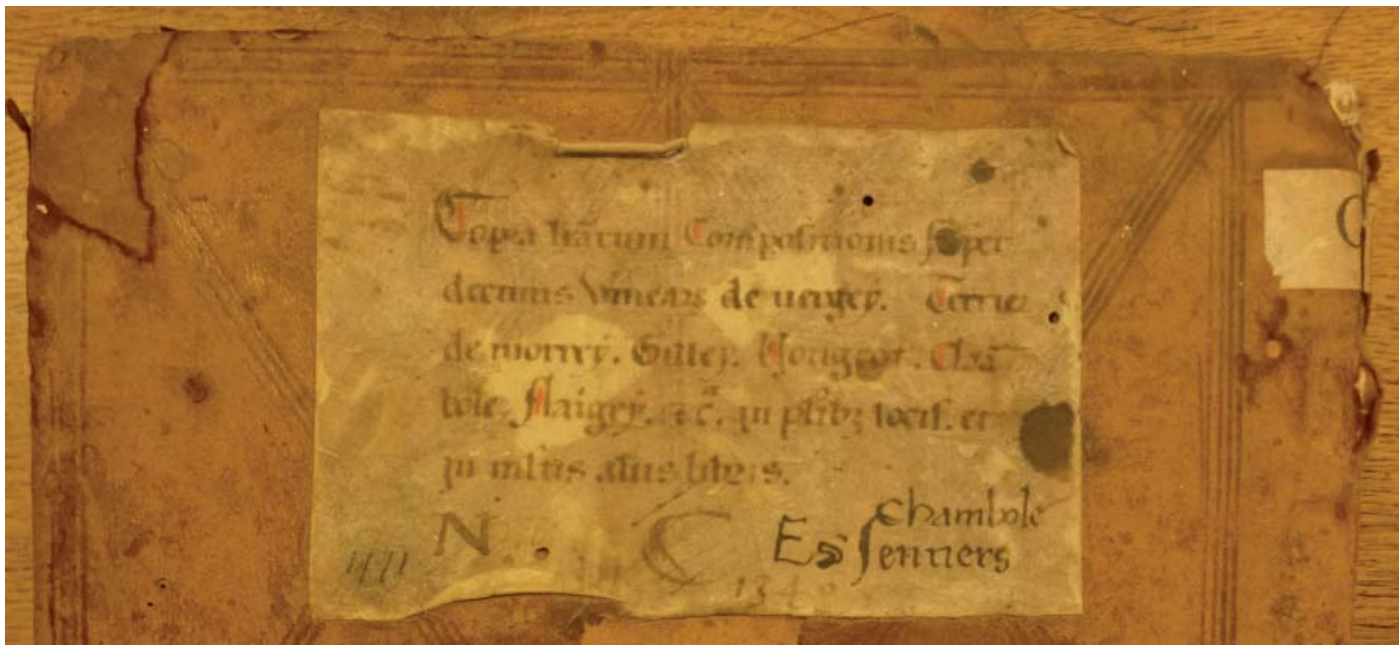 Copia lr̃arum Compositionis super
decimis vinear̃ de uergey.
de morrey. Gilley. Vougeot. Chã
bole, flaigey. ⁊c̃. in plibꝫ locis. et
in mltis aliis libris.
Chambole
N C Es ſentiers
134
C